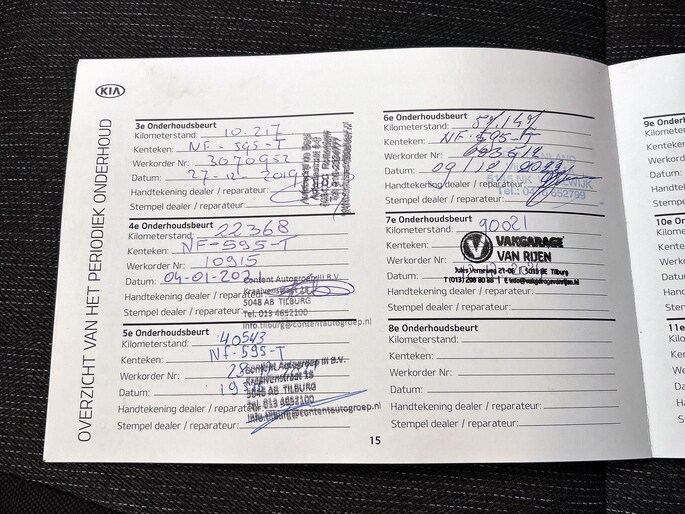 KIA
OVERZICHT VAN HET PERIODIEK ONDERHOUD
3e Onderhoudsbeurt
Kilometerstand: 10.217
Kenteken: NF-595-T
Werkorder Nr: 3070952
Datum: 27-12-2019
Handtekening dealer / reparateur:
Stempel dealer / reparateur:
4e Onderhoudsbeurt
Kilometerstand: 22368
Kenteken: NF-595-T
Werkorder Nr: 10915
Datum: 04-01-2021
Handtekening dealer / reparateur
Stempel dealer / reparateur:
Content Autogroep III B.V.
Kraaivenstraat 19
5048 AB TILBURG
Tel. 013 4652100
info.tilburg@contentautogroep.nl
5e Onderhoudsbeurt
Kilometerstand: 40543
Kenteken: NF-595-T
Werkorder Nr:
Datum:
Handtekening dealer / reparateur
Stempel dealer / reparateur:
Content Autogroep III B.V.
Kraaivenstraat 19
5048 AB TILBURG
Tel. 013 4652100
info.tilburg@contentautogroep.nl
6e Onderhoudsbeurt
Kilometerstand:
Kenteken: NF-595-T
Werkorder Nr:
Datum:
Handtekening dealer / reparateur:
Stempel dealer / reparateur:
7e Onderhoudsbeurt
Kilometerstand: 90021
Kenteken:
Werkorder Nr:
Datum:
VAKGARAGE
VAN RIJEN
T (013) 208 80 88 | E info@vakgaragevanrijen.nl
Handtekening dealer / reparateur:
Stempel dealer / reparateur:
8e Onderhoudsbeurt
Kilometerstand:
Kenteken:
Werkorder Nr:
Datum:
Handtekening dealer / reparateur:
Stempel dealer / reparateur:
15
9e On
Kilome
Kente
Werko
Datum
Handt
Stemp
10e O
Kilom
Kente
Werk
Datu
Hand
Stem
11e
Kilo
Ken
We
Da
Ha
St